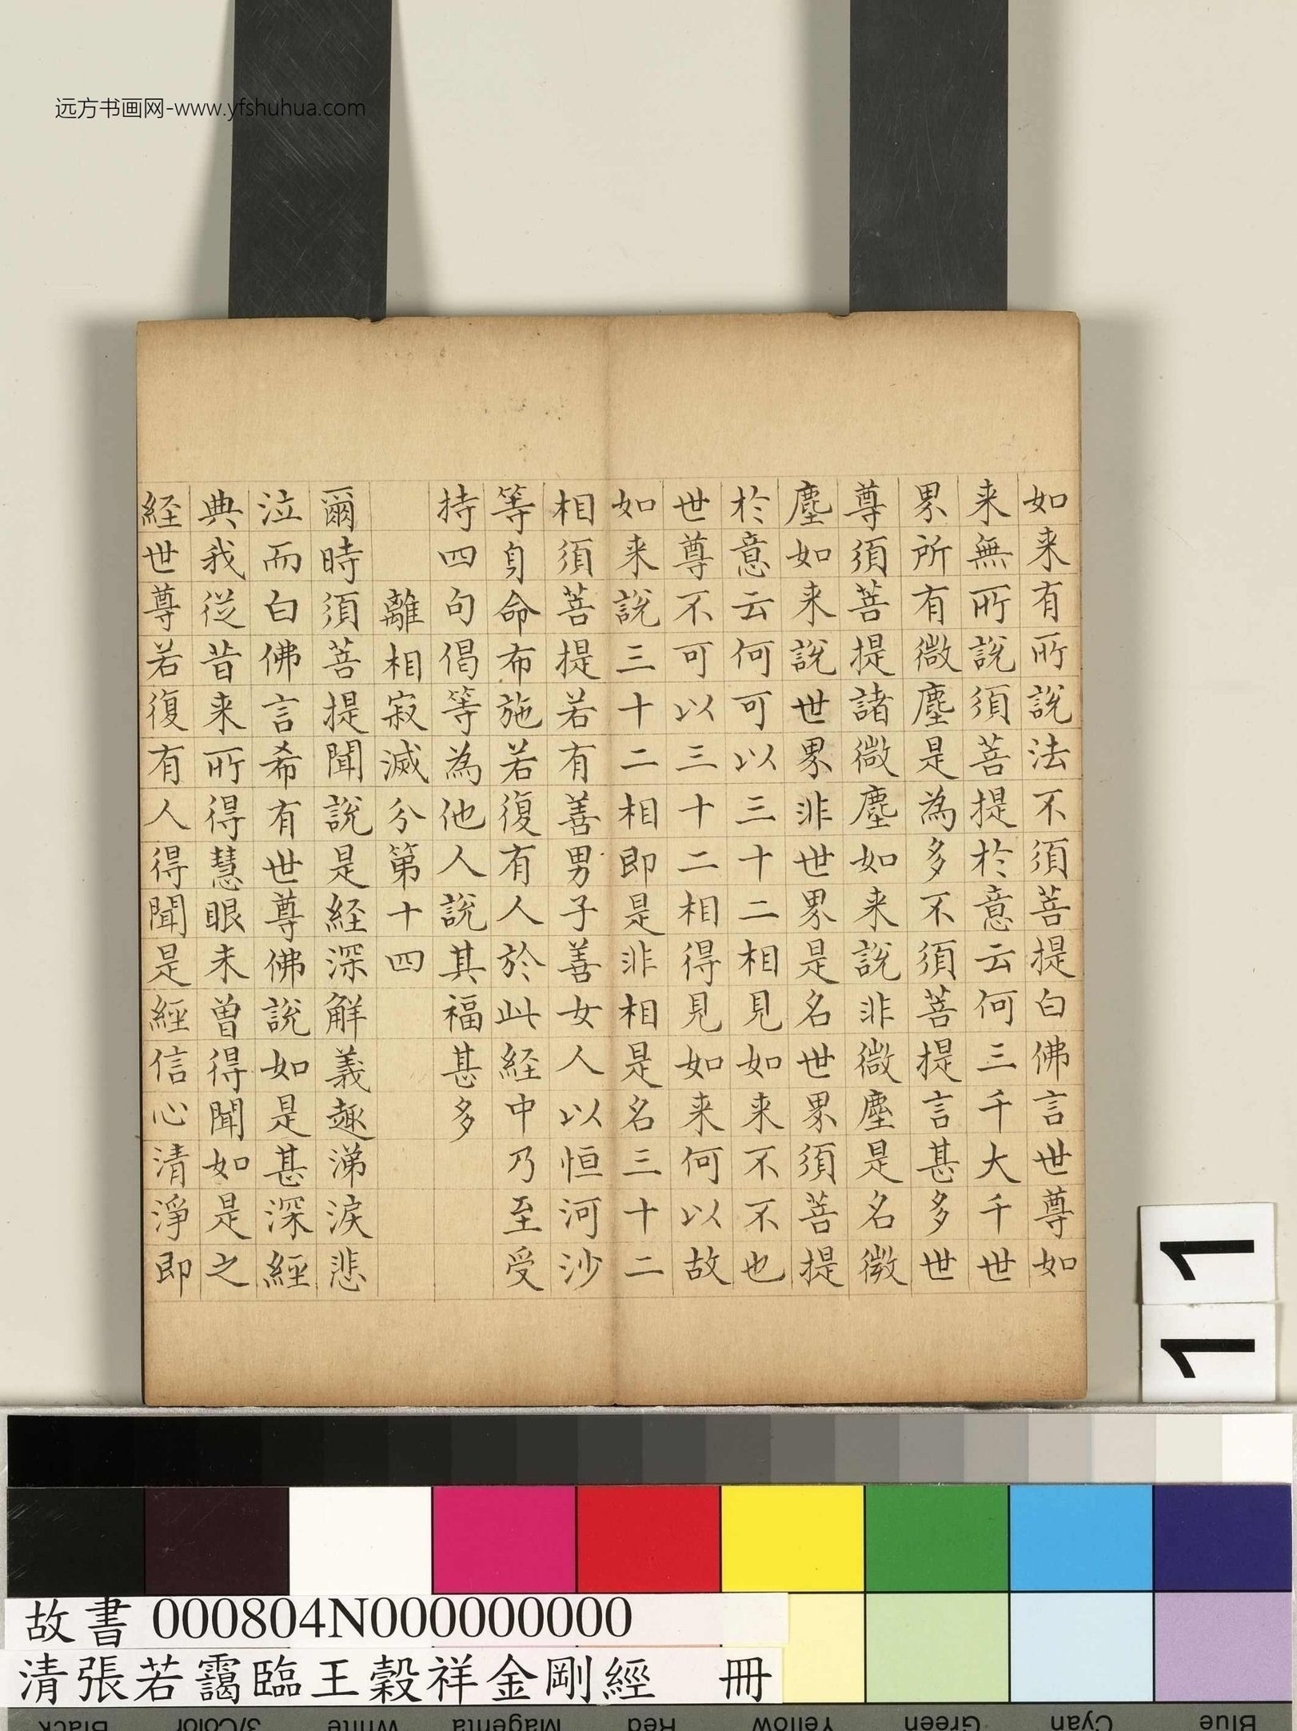 远方书画网-www.yfshuhua.com
如来有所說法不須菩提白佛言世尊如
来無所說須菩提於意云何三千大千世
界所有微塵是為多不須菩提言甚多世
尊須菩提諸微塵如来說非微塵是名微
塵如来說世界非世界是名世界須菩提
於意云何可以三十二相見如来不不也
世尊不可以三十二相得見如来何以故
如来說三十二相即是非相是名三十二
相須菩提若有善男子善女人以恒河沙
等身命布施若復有人於此經中乃至受
持四句偈等為他人說其福甚多
離相寂滅分第十四
爾時須菩提聞說是經深解義趣涕淚悲
泣而白佛言希有世尊佛說如是甚深經
典我從昔来所得慧眼未曾得聞如是之
經世尊若復有人得聞是經信心清淨即
11
11
故書 000804N000000000
清張若靄臨王穀祥金剛經 冊
Black
3/Color
White
Magenta
Red
Yellow
Green
Cyan
Blue